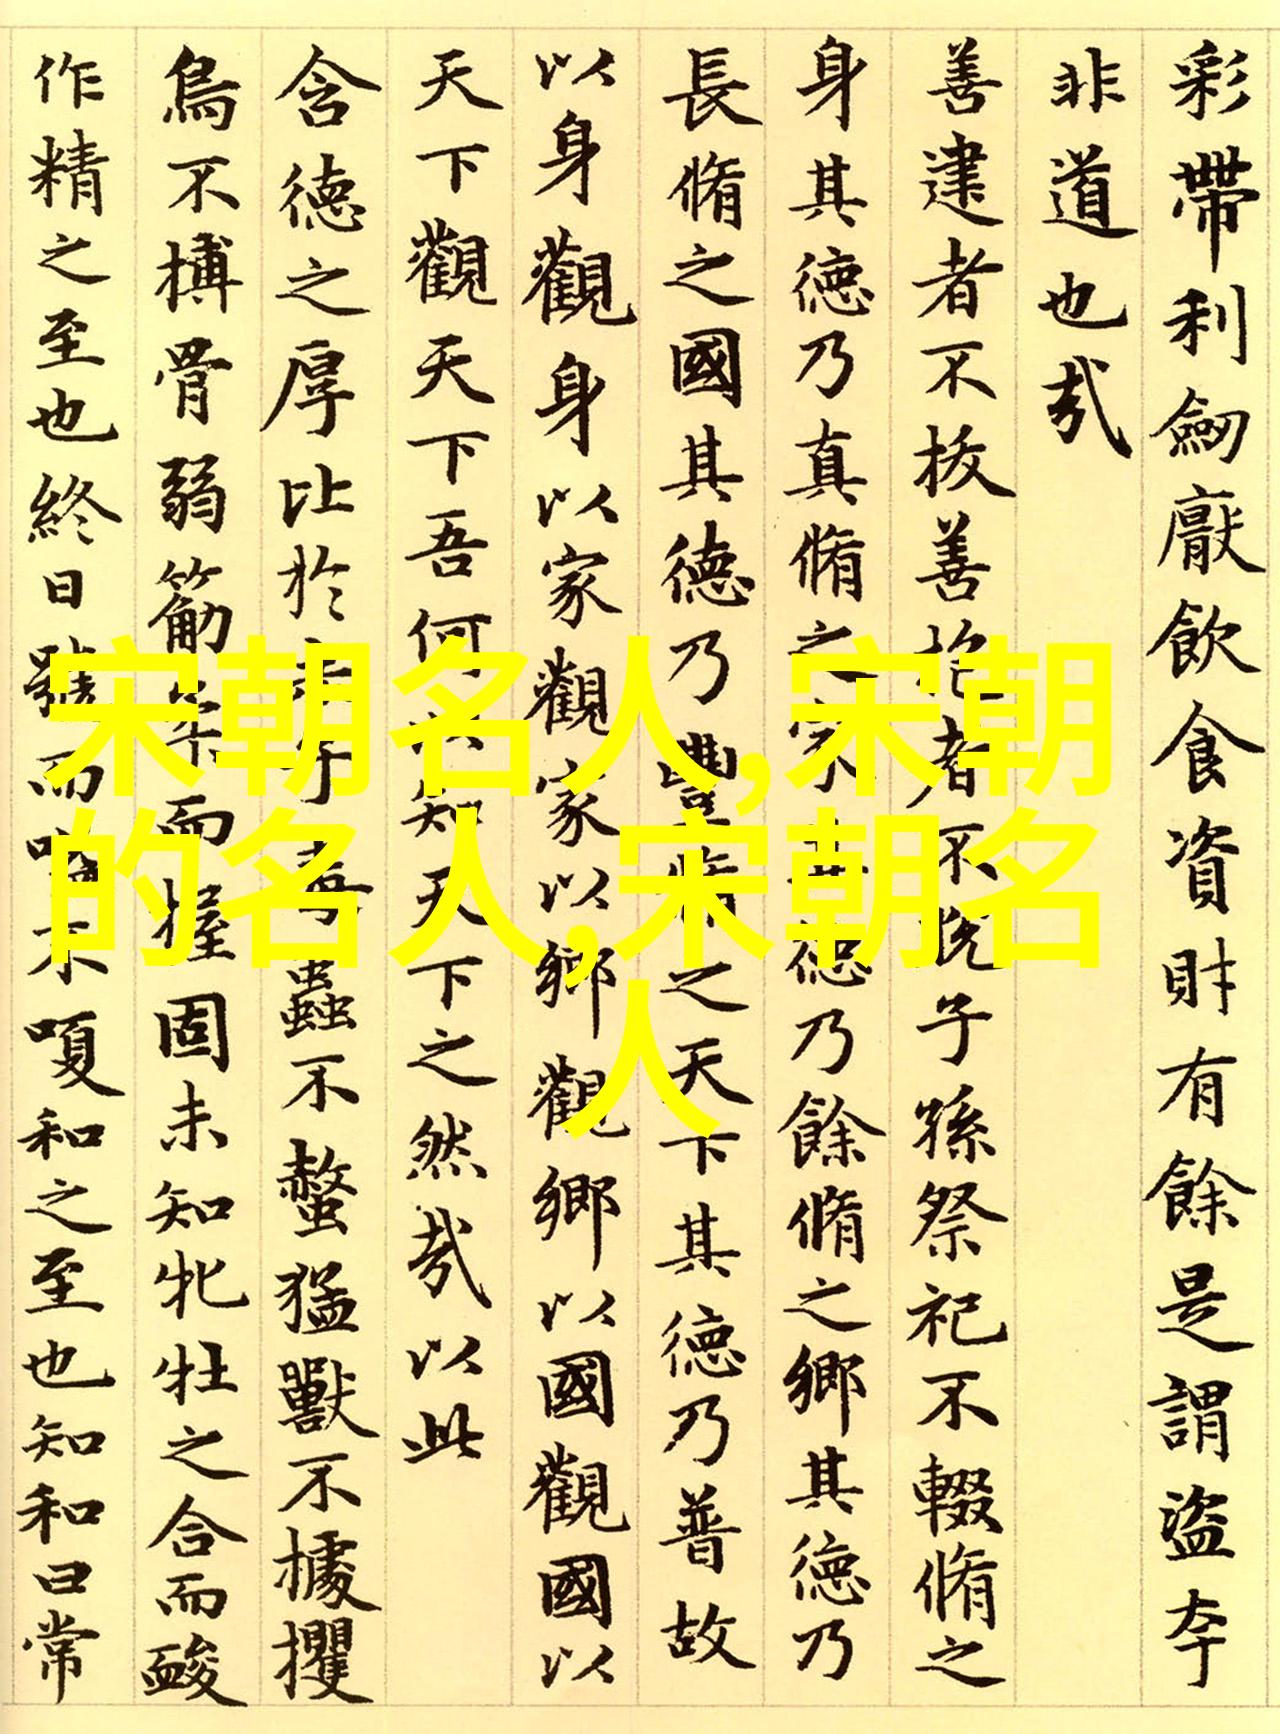 彩帶利劒厭飲食資財有餘是謂盜夸
非道也㢤
善建者不拔善抱者不脫子孫祭祀不輟脩之
身其德乃真脩之家其德乃餘脩之鄉其德乃
長脩之國其德乃豐脩之天下其德乃普故
以身觀身以家觀家以鄉觀鄉以國觀國以
天下觀天下吾何以知天下之然㢤以此
含德之厚比於赤子毒蟲不螫猛獸不據攫
鳥不搏骨弱筋柔而握固未知牝牡之合而䘒
作精之至也終日號而嗌不嗄和之至也知和曰常
宋朝名人,宋朝
的名人,宋朝名
人